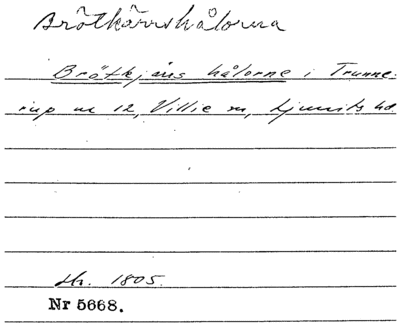 Brötkärrshålorna
Brötkjärs hålorne i Trunne-
rup nr 12, Villie sn, Ljunits hd
Hr. 1805.
Nr 5668.